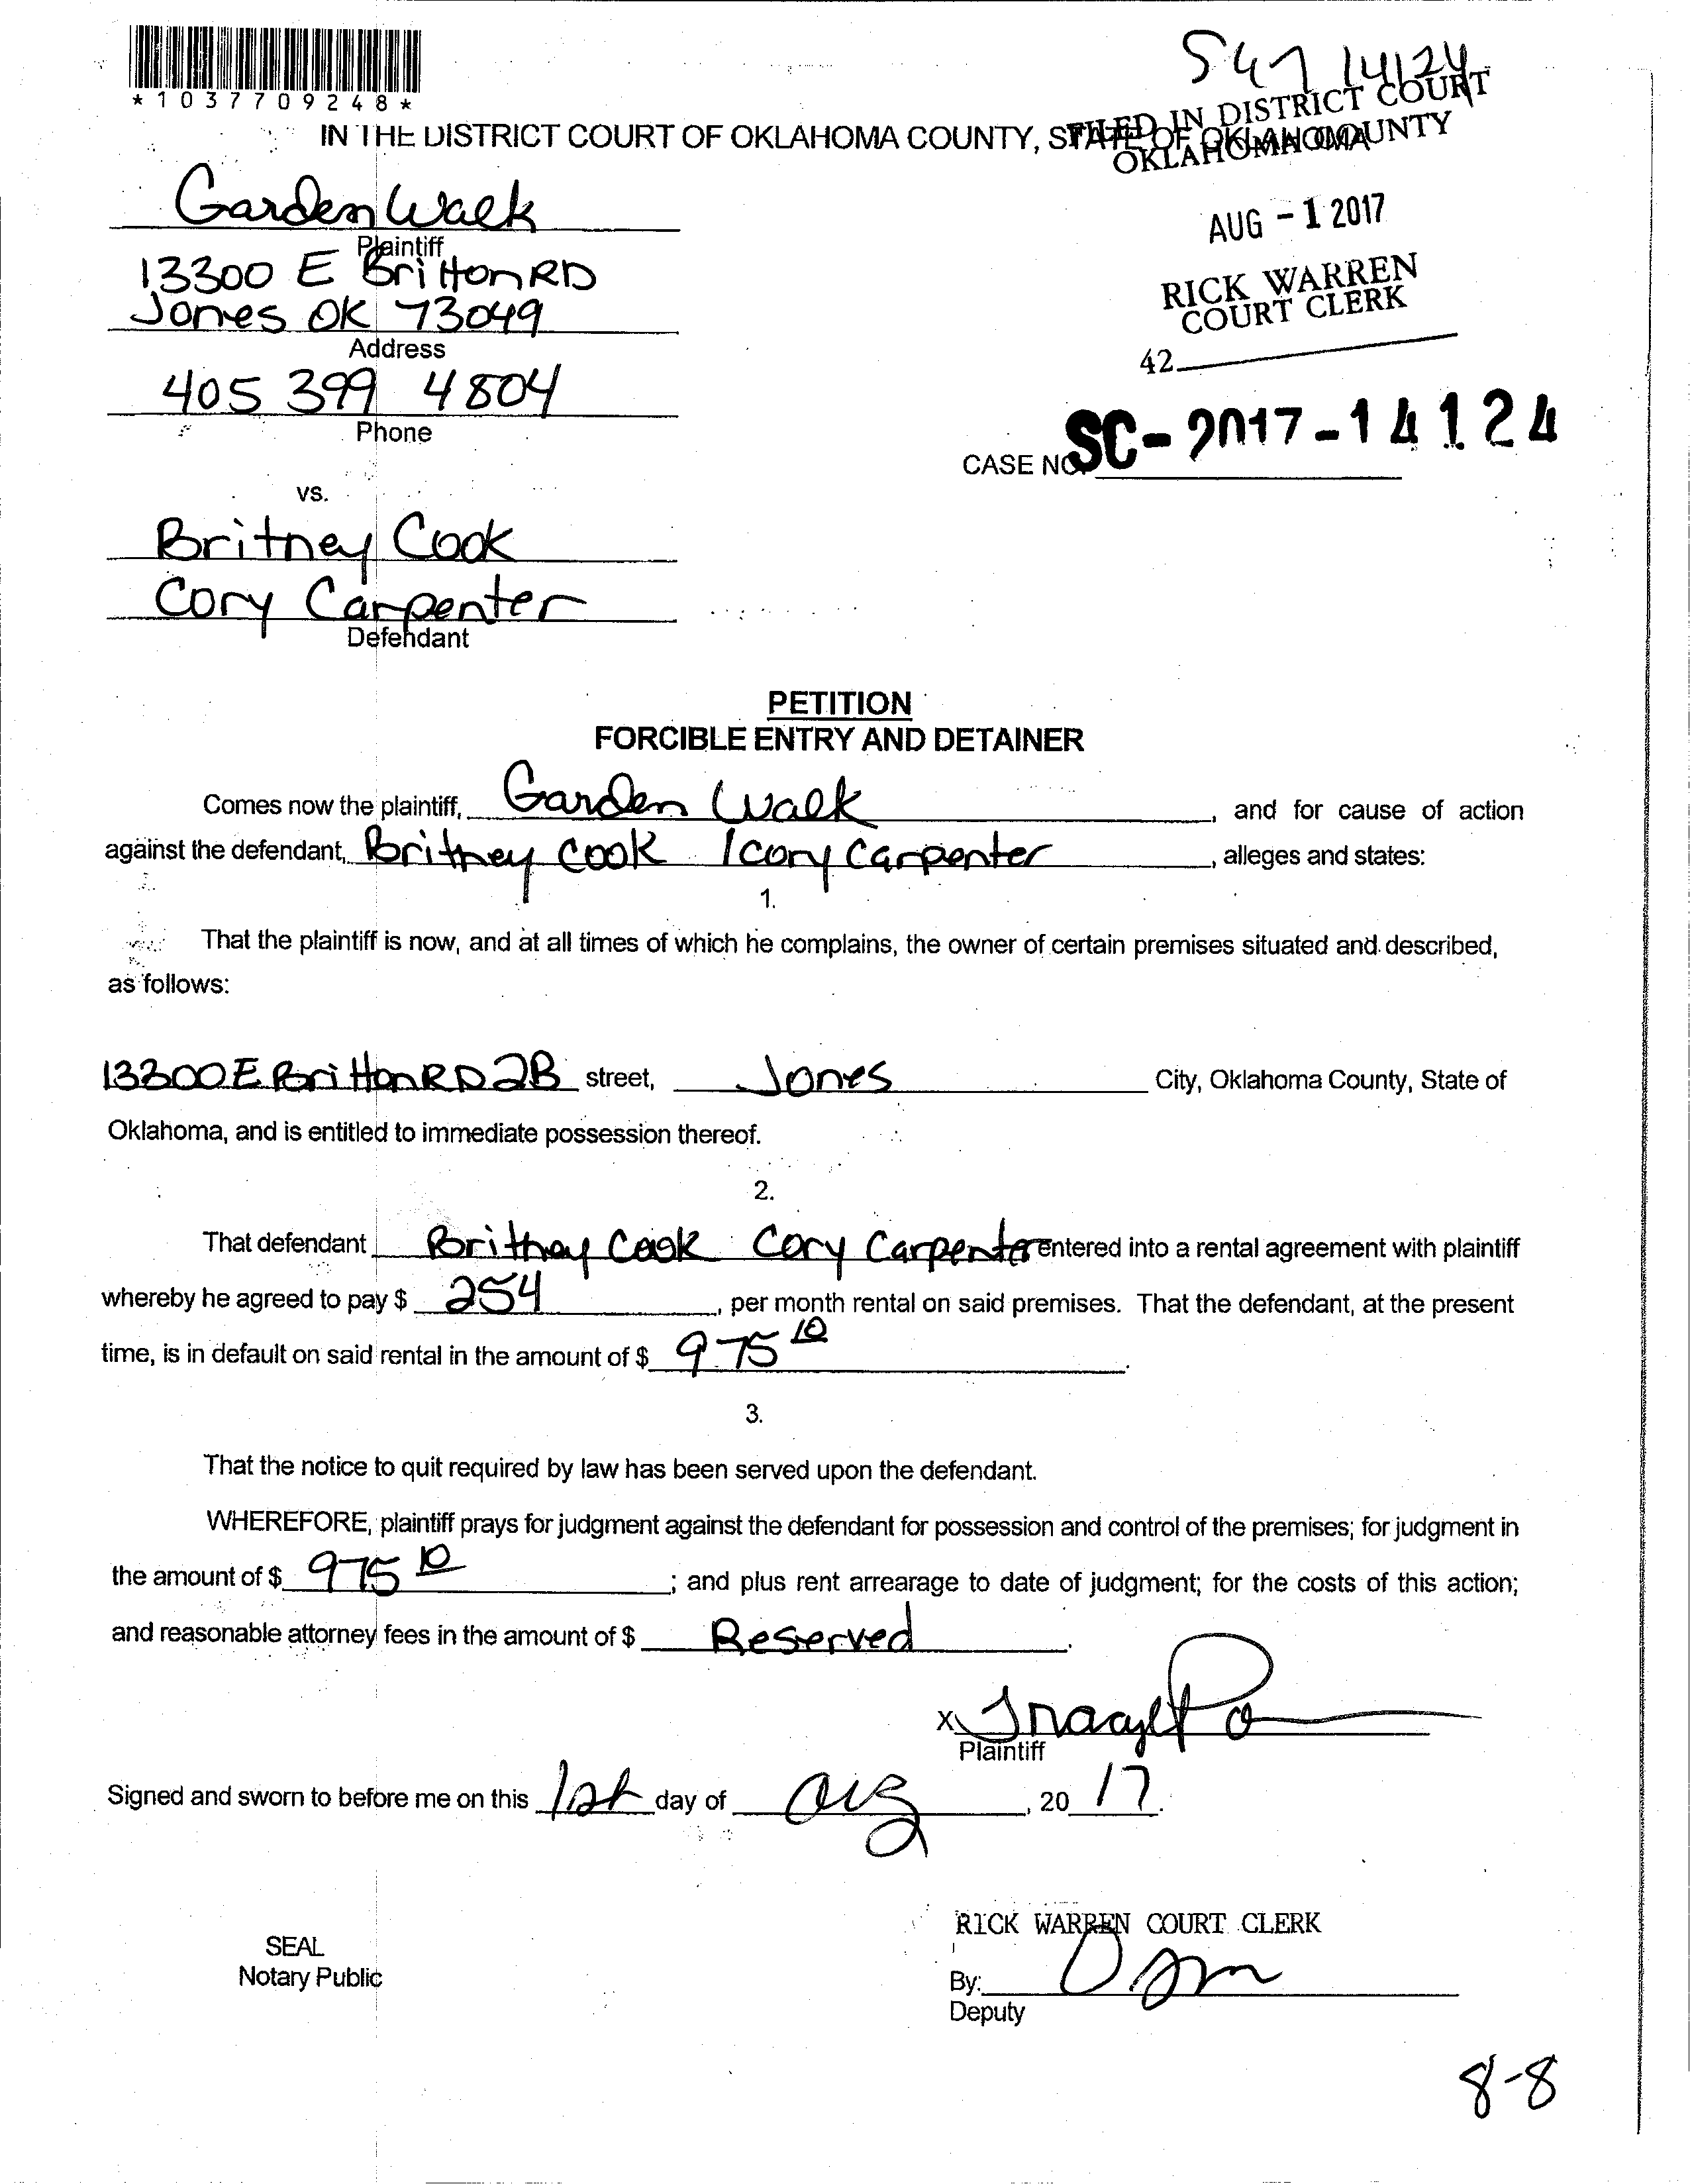 *1037709248*
14124
FILED IN DISTRICT COURT
OKLAHOMA COUNTY
IN THE DISTRICT COURT OF OKLAHOMA COUNTY, STATE OF OKLAHOMA
AUG - 1 2017
RICK WARREN
COURT CLERK
42
Garden Walk
Plaintiff
13300 E Britton RD
Jones OK 73049
Address
405 399 4804
Phone
CASE NO. SC-2017-14124
vs.
Britney Cook
Cory Carpenter
Defendant
PETITION
FORCIBLE ENTRY AND DETAINER
Comes now the plaintiff, Garden Walk, and for cause of action
against the defendant, Britney Cook / Cory Carpenter, alleges and states:
1.
That the plaintiff is now, and at all times of which he complains, the owner of certain premises situated and described,
as follows:
13300 E Britton RD 2B street, Jones City, Oklahoma County, State of
Oklahoma, and is entitled to immediate possession thereof.
2.
That defendant Britney Cook Cory Carpenter entered into a rental agreement with plaintiff
whereby he agreed to pay $ 254, per month rental on said premises. That the defendant, at the present
time, is in default on said rental in the amount of $ 975 10.
3.
That the notice to quit required by law has been served upon the defendant.
WHEREFORE, plaintiff prays for judgment against the defendant for possession and control of the premises; for judgment in
the amount of $ 975 10; and plus rent arrearage to date of judgment; for the costs of this action;
and reasonable attorney fees in the amount of $ Reserved.
X
Plaintiff
Signed and sworn to before me on this 1st day of Aug, 20 17.
RICK WARREN COURT CLERK
SEAL
Notary Public
By:
Deputy
8-8